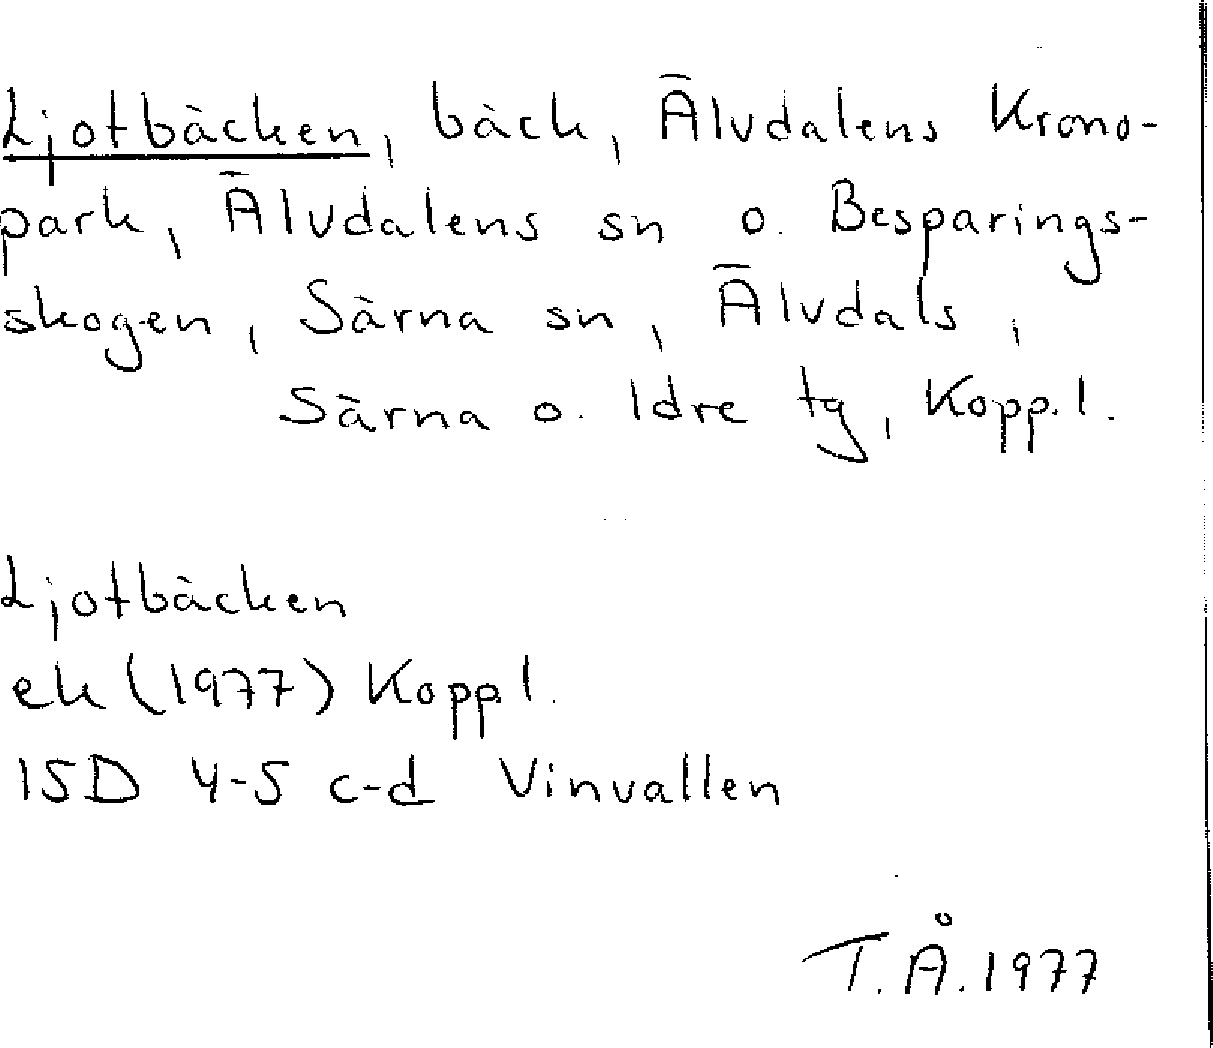 Ljotbäcken, bäck, Älvdalens Krono-
park, Älvdalens sn o. Besparings-
skogen, Särna sn, Älvdals,
Särna o. Idre tg, Kopp.l.
Ljotbäcken
ek (1977) Koppl.
15D 4-5 c-d Vinvallen
T.Å.1977